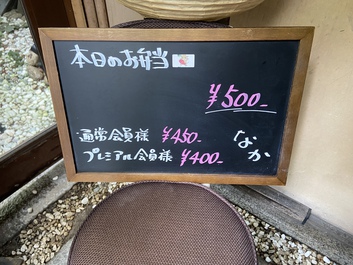 本日のお弁当
¥500-
通常会員様 ¥450-
プレミアル会員様 ¥400-
なか